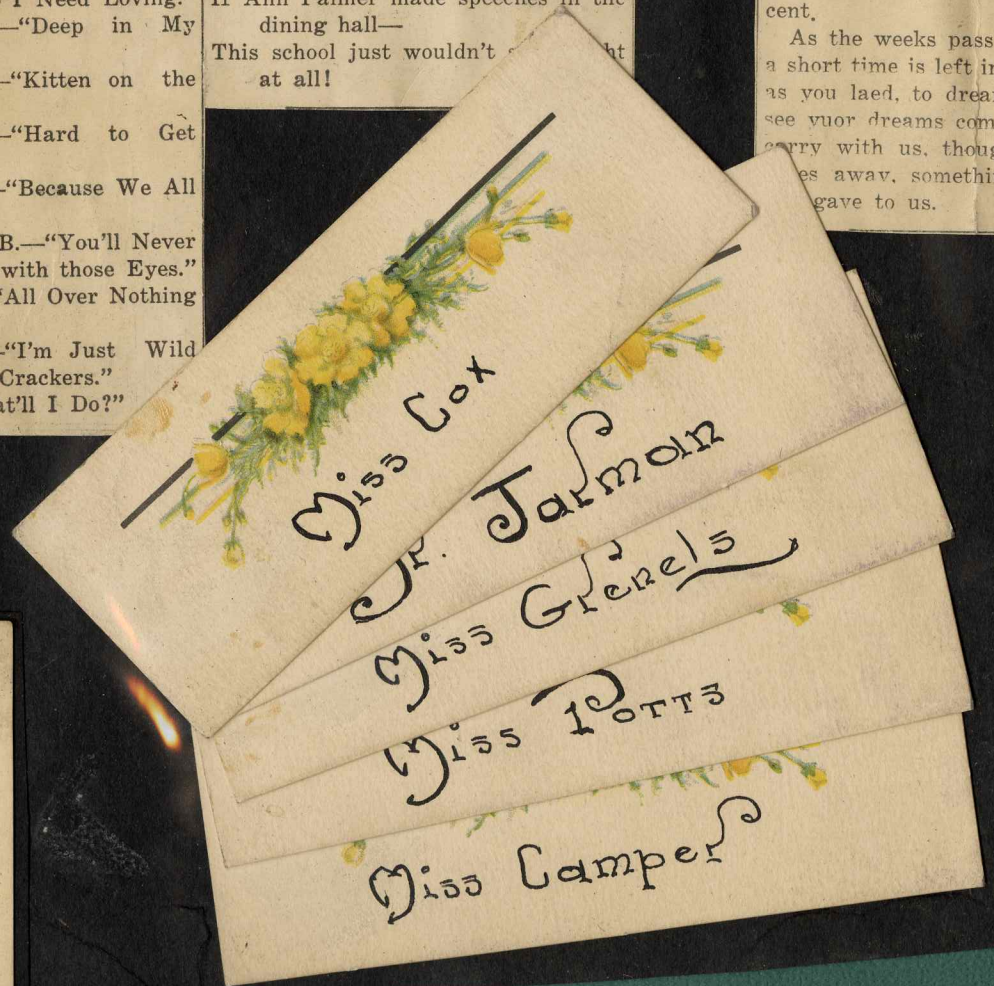 I Need Loving."
—"Deep in My
—"Kitten on the
—"Hard to Get
—"Because We All
B.—"You'll Never
with those Eyes."
"All Over Nothing
—"I'm Just Wild
Crackers."
at'll I Do?"
If Ann Palmer made speeches in the
dining hall—
This school just wouldn't
at all!
cent.
As the weeks pass
a short time is left in
as you laed, to drea
see yuor dreams com
carry with us, thoug
es away, somethi
gave to us.
Miss Cox
Dr. Jarman
Miss Grenels
Miss Potts
Miss Camper